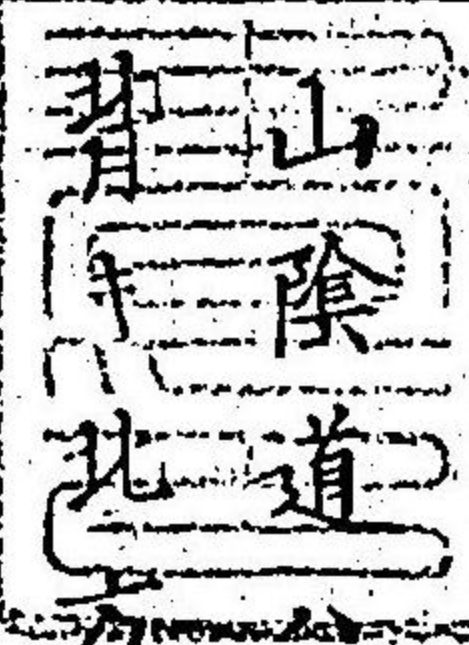 山陰道
背キ北